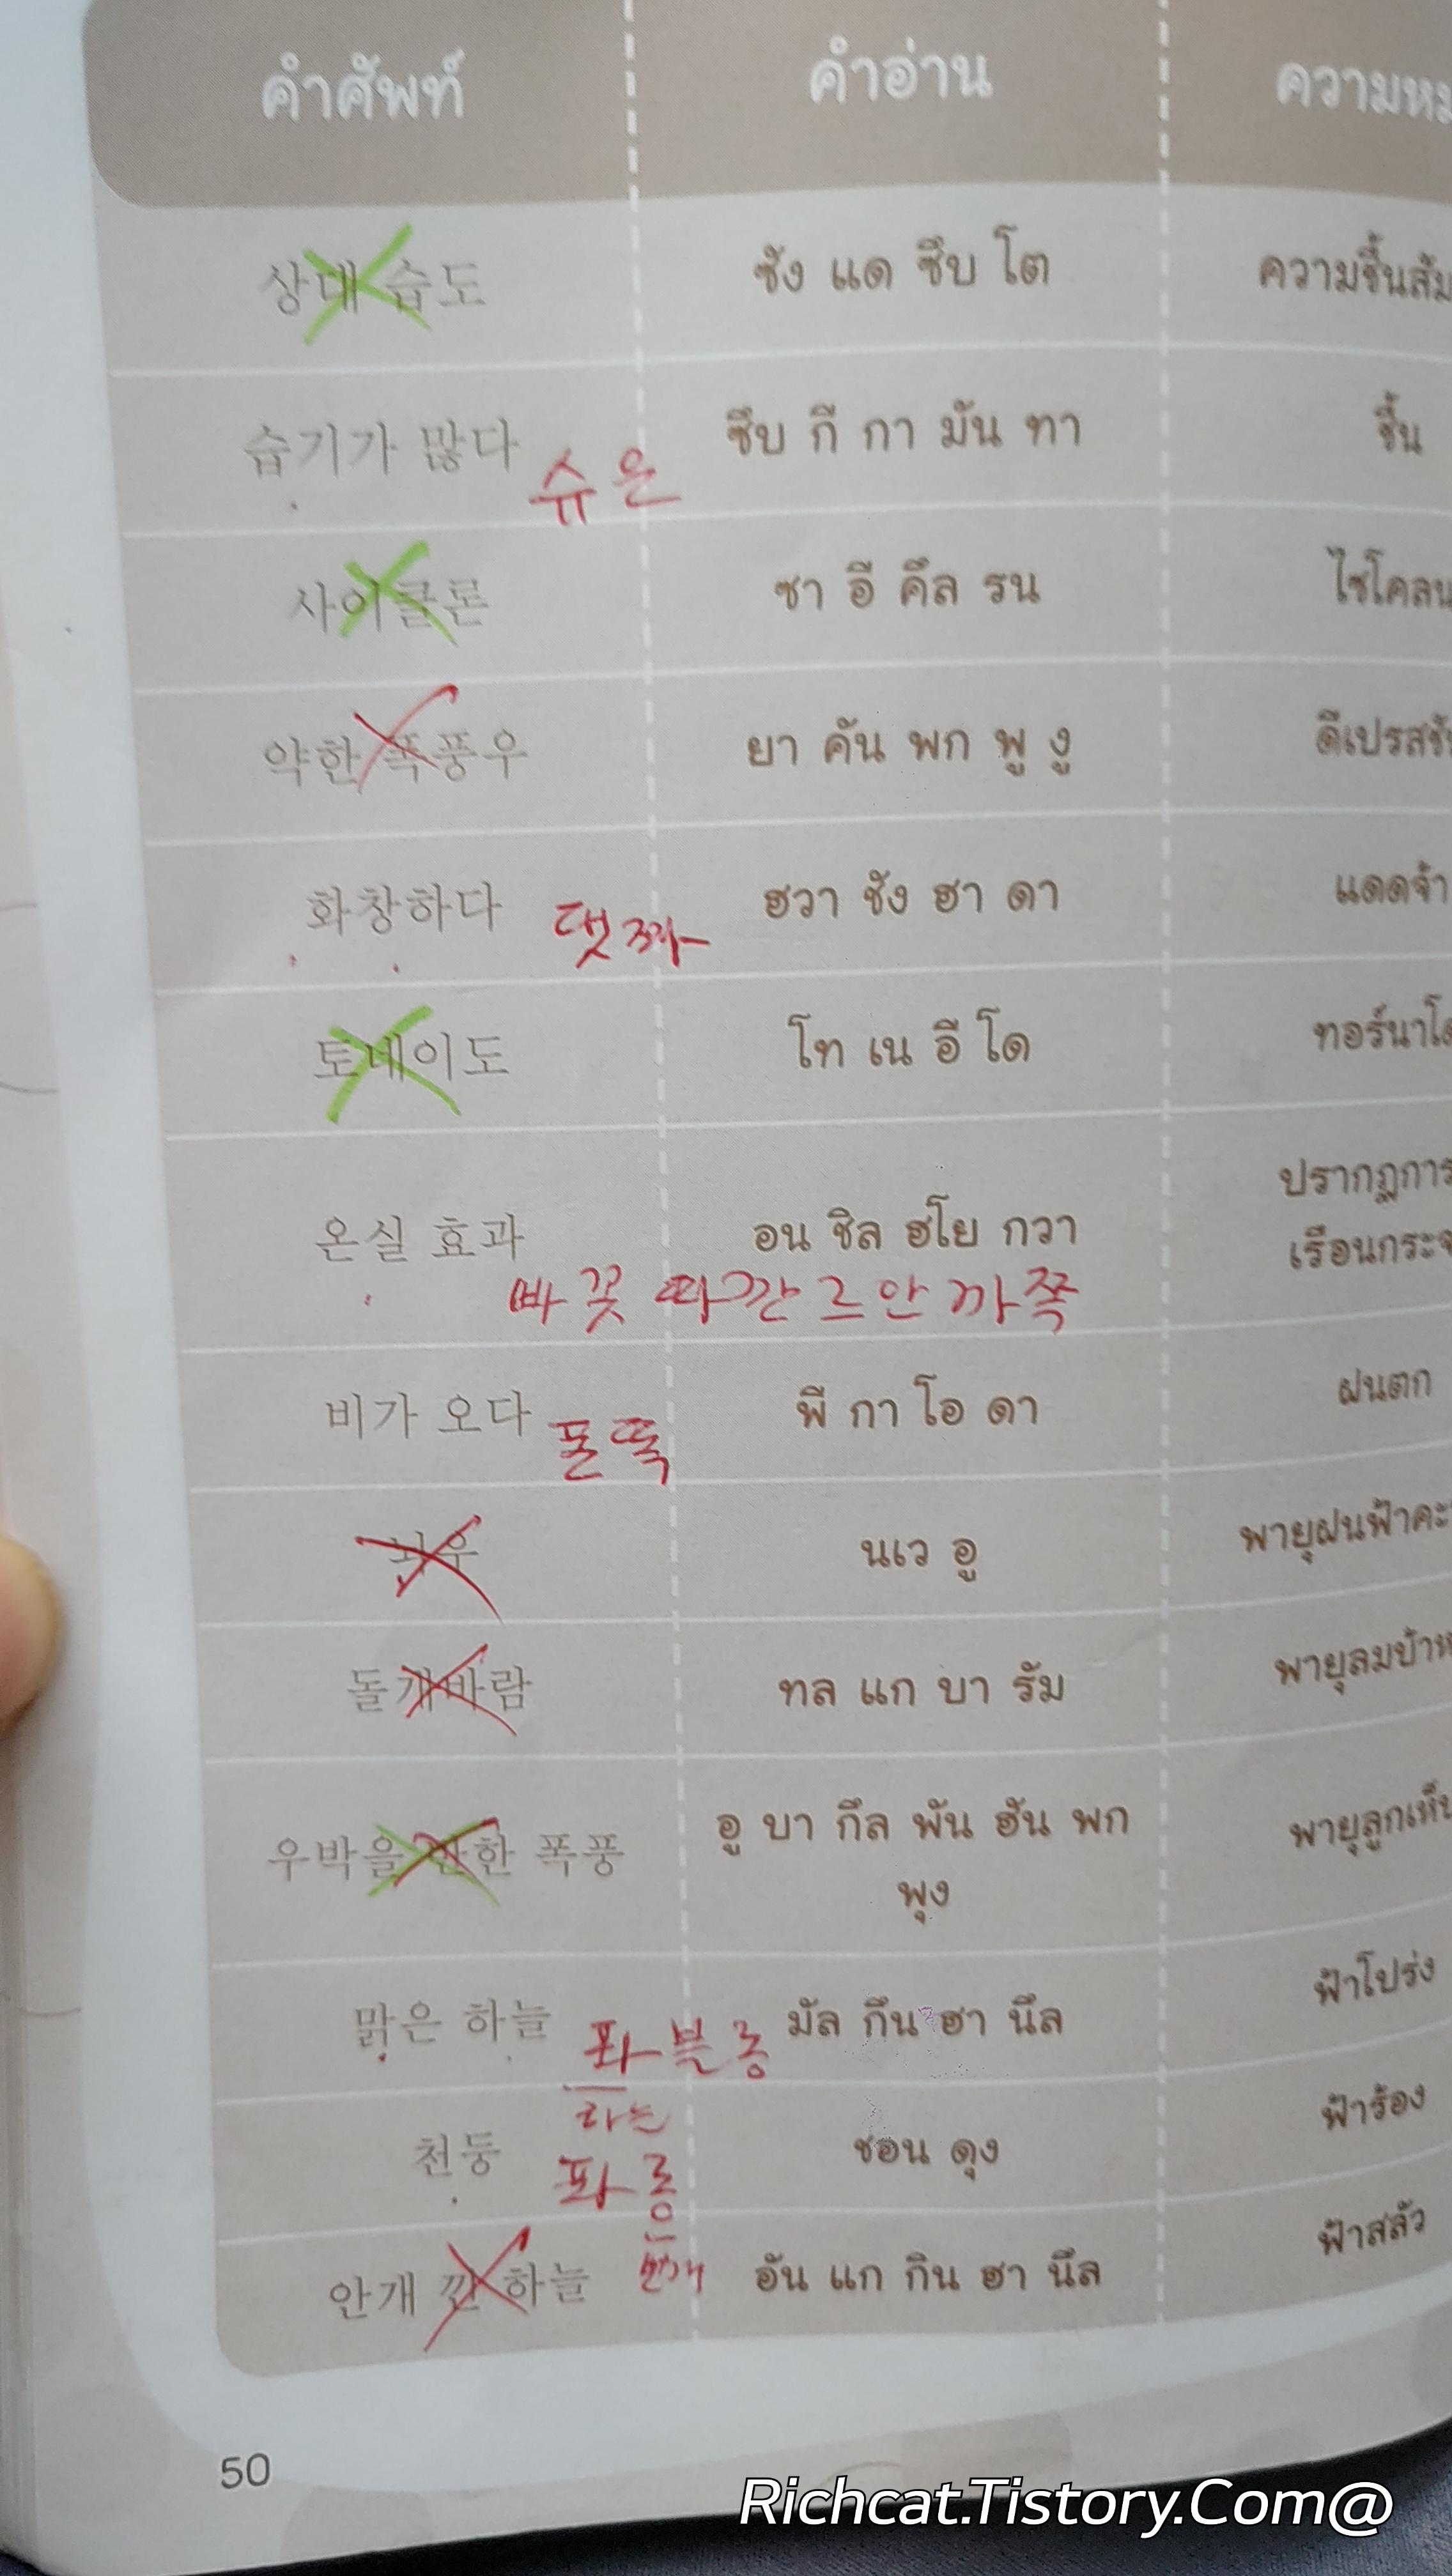 คำศัพท์ คำอ่าน
상대 습도 ซัง แด ซึบ โต ความชื้นสัม
습기가 많다 ซึบ กี กา มัน ทา ชื้น
슈은
사이클론 ซา อี คึล รน ไซโคลน
약한 폭풍우 ยา คัน พก พู งู ดีเปรสชั
화창하다 ฮวา ชัง ฮา ดา แดดจ้า
댓짜
토네이도 โท เน อี โด ทอร์นาโด
온실 효과 อน ชิล ฮโย กวา ปรากฏการ
เรือนกระจ
비가 오다 พี กา โอ ดา ฝนตก
폰똑
뇌우 นเว อู พายุฝนฟ้าคะ
돌개바람 ทล แก บา รัม พายุลมบ้าห
우박을 동반한 폭풍 อู บา กึล พัน ฮัน พก พายุลูกเห็บ
พุง
맑은 하늘 มัล กึน ฮา นึล ฟ้าโปร่ง
하는
천둥 ชอน ดุง ฟ้าร้อง
안개 낀 하늘 อัน แก กิน ฮา นึล ฟ้าสลัว
50
Richcat.Tistory.Com@